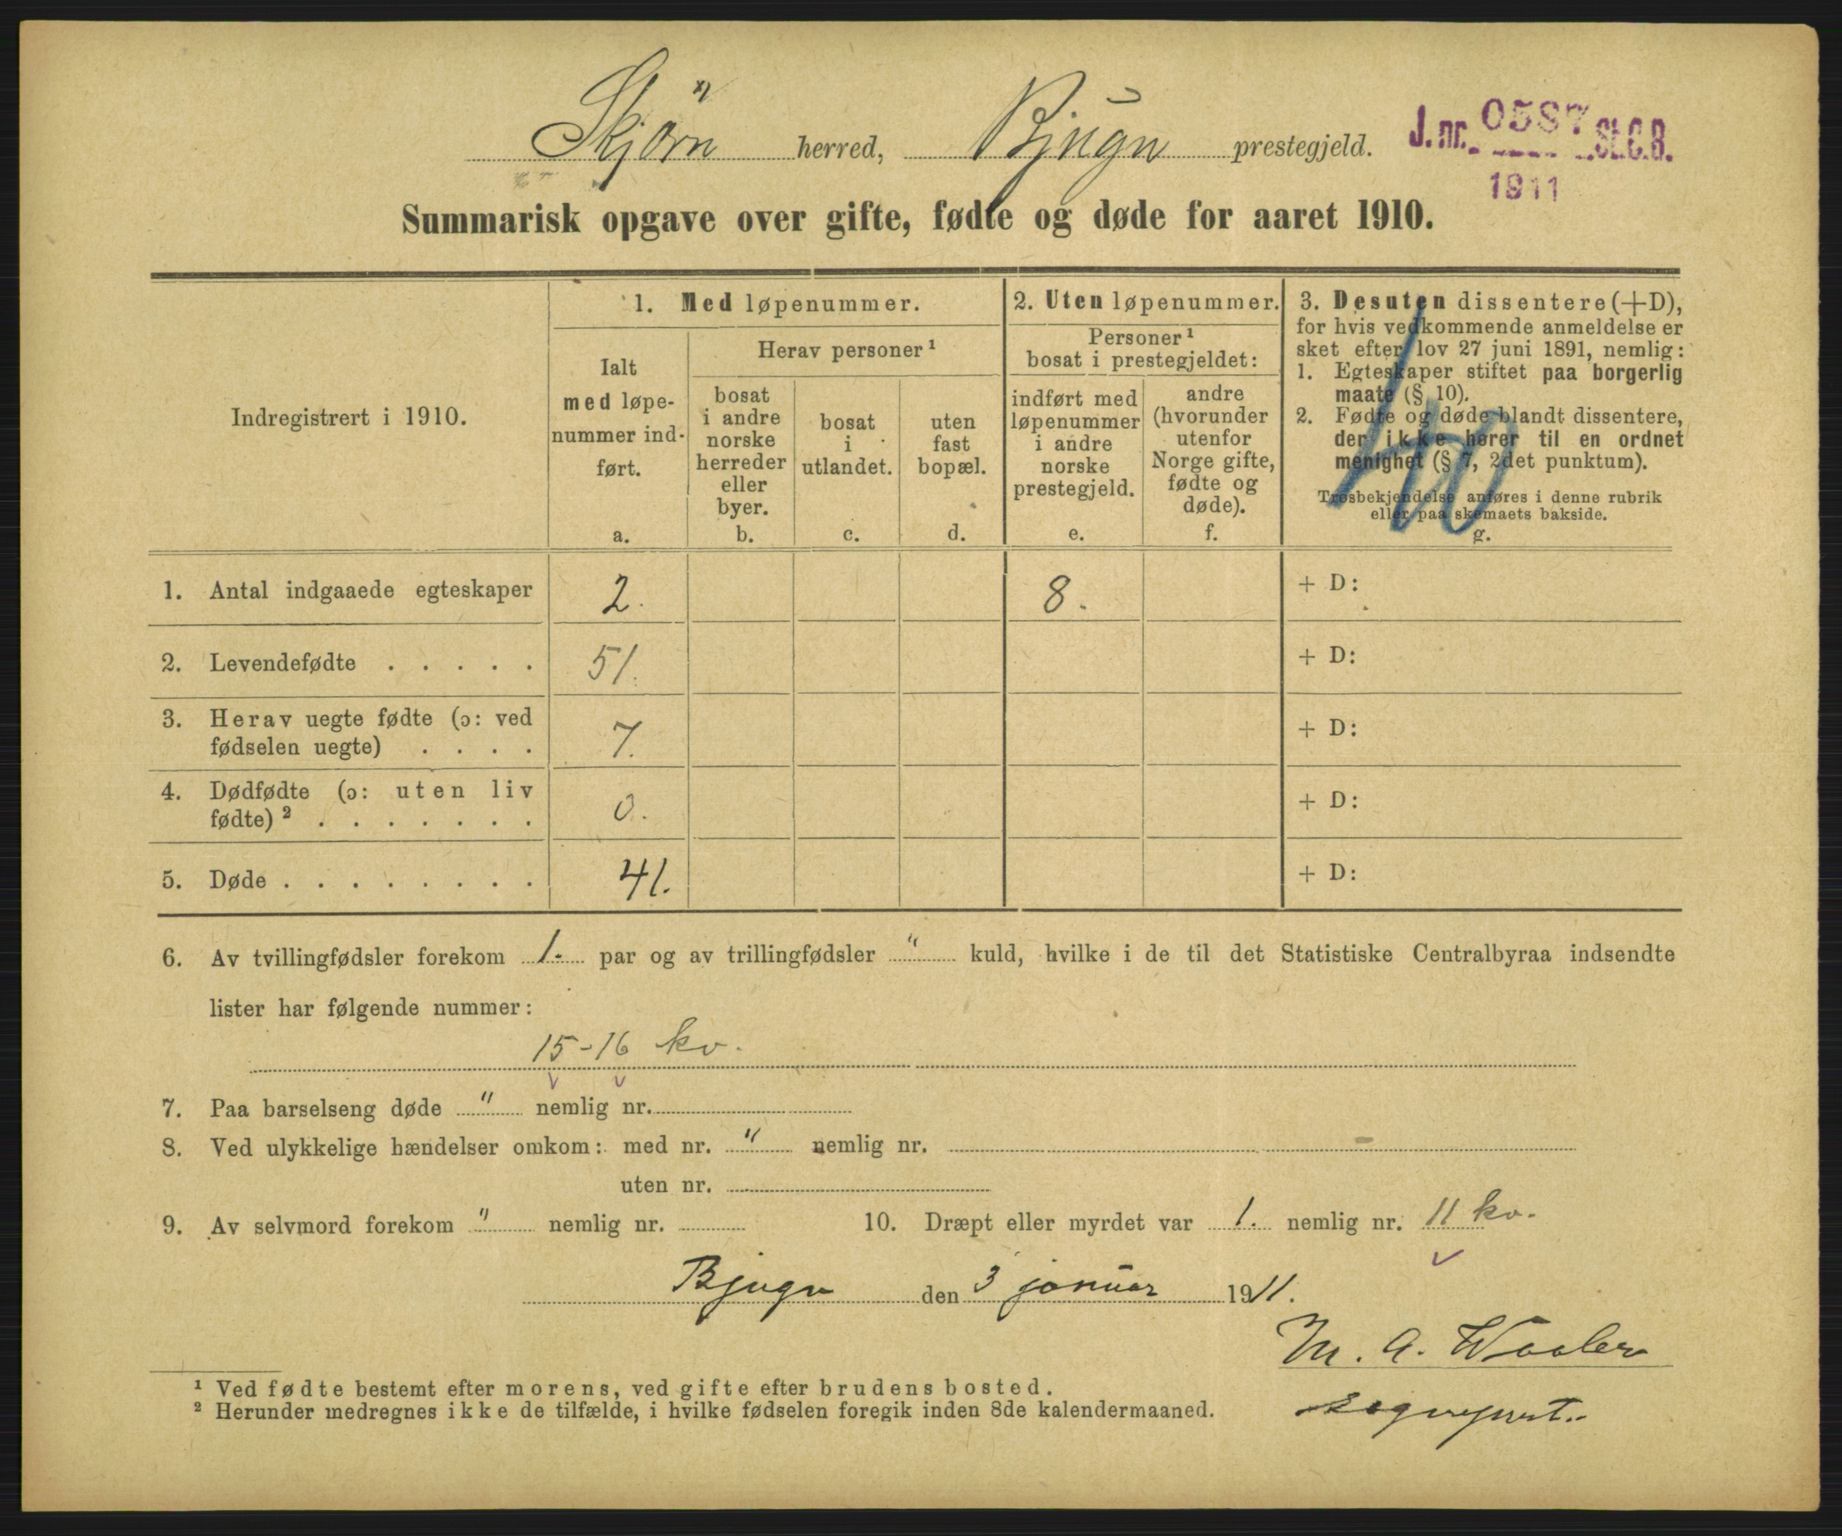 Skjörn herred, Bjugn prestegjeld. J.nr. 0587 St.C.B.
1911
Summarisk opgave over gifte, fødte og døde for aaret 1910.
Indregistrert i 1910.
1. Med løpenummer.
Ialt
med løpe-
nummer ind-
ført.
a.
Herav personer ¹
bosat
i andre
norske
herreder
eller
byer.
b.
bosat
i
utlandet.
c.
uten
fast
bopæl.
d.
2. Uten løpenummer.
Personer ¹
bosat i prestegjeldet:
indført med
løpenummer
i andre
norske
prestegjeld.
e.
andre
(hvorunder
utenfor
Norge gifte,
fødte og
døde).
f.
3. Desuten dissentere (+D),
for hvis vedkommende anmeldelse er
sket efter lov 27 juni 1891, nemlig:
1. Egteskaper stiftet paa borgerlig
maate (§ 10).
2. Fødte og døde blandt dissentere,
der ikke hører til en ordnet
menighet (§ 7, 2det punktum).
Trosbekjendelse anføres i denne rubrik
eller paa skemaets bakside.
g.
1. Antal indgaaede egteskaper 2. 8. + D:
2. Levendefødte . . . . . 51. + D:
3. Herav uegte fødte (ɔ: ved
fødselen uegte) . . . . 7. + D:
4. Dødfødte (ɔ: uten liv
fødte) ² . . . . . . . 0. + D:
5. Døde . . . . . . . . 41. + D:
6. Av tvillingfødsler forekom 1. par og av trillingfødsler " kuld, hvilke i de til det Statistiske Centralbyraa indsendte
lister har følgende nummer:
15-16 kv.
7. Paa barselseng døde " nemlig nr.
8. Ved ulykkelige hændelser omkom: med nr. " nemlig nr.
uten nr.
9. Av selvmord forekom " nemlig nr. 10. Dræpt eller myrdet var 1. nemlig nr. 11 kv.
Bjugn den 3 januar 1911.
M. A. Waaler
sogneprest.
¹ Ved fødte bestemt efter morens, ved gifte efter brudens bosted.
² Herunder medregnes ikke de tilfælde, i hvilke fødselen foregik inden 8de kalendermaaned.